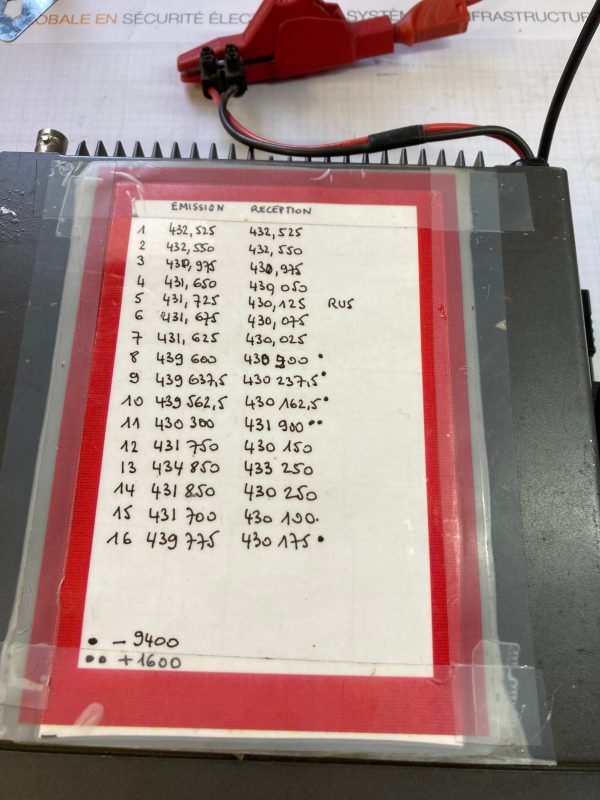 OBALE EN SÉCURITÉ ÉLEC SYSTÈM INFRASTRUCTUR
EMISSION RECEPTION
1 432,525 432,525
2 432,550 432,550
3 430,975 430,975
4 431,650 430 050
5 431,725 430,125 RU5
6 431,675 430,075
7 431,625 430,025
8 439 600 430 900 •
9 439 637,5 430 237,5 •
10 439 562,5 430 162,5 •
11 430 300 431 900 ••
12 431 750 430 150
13 434 850 433 250
14 431 850 430 250
15 431 700 430 100.
16 439 775 430 175 •
• - 9400
•• +1600